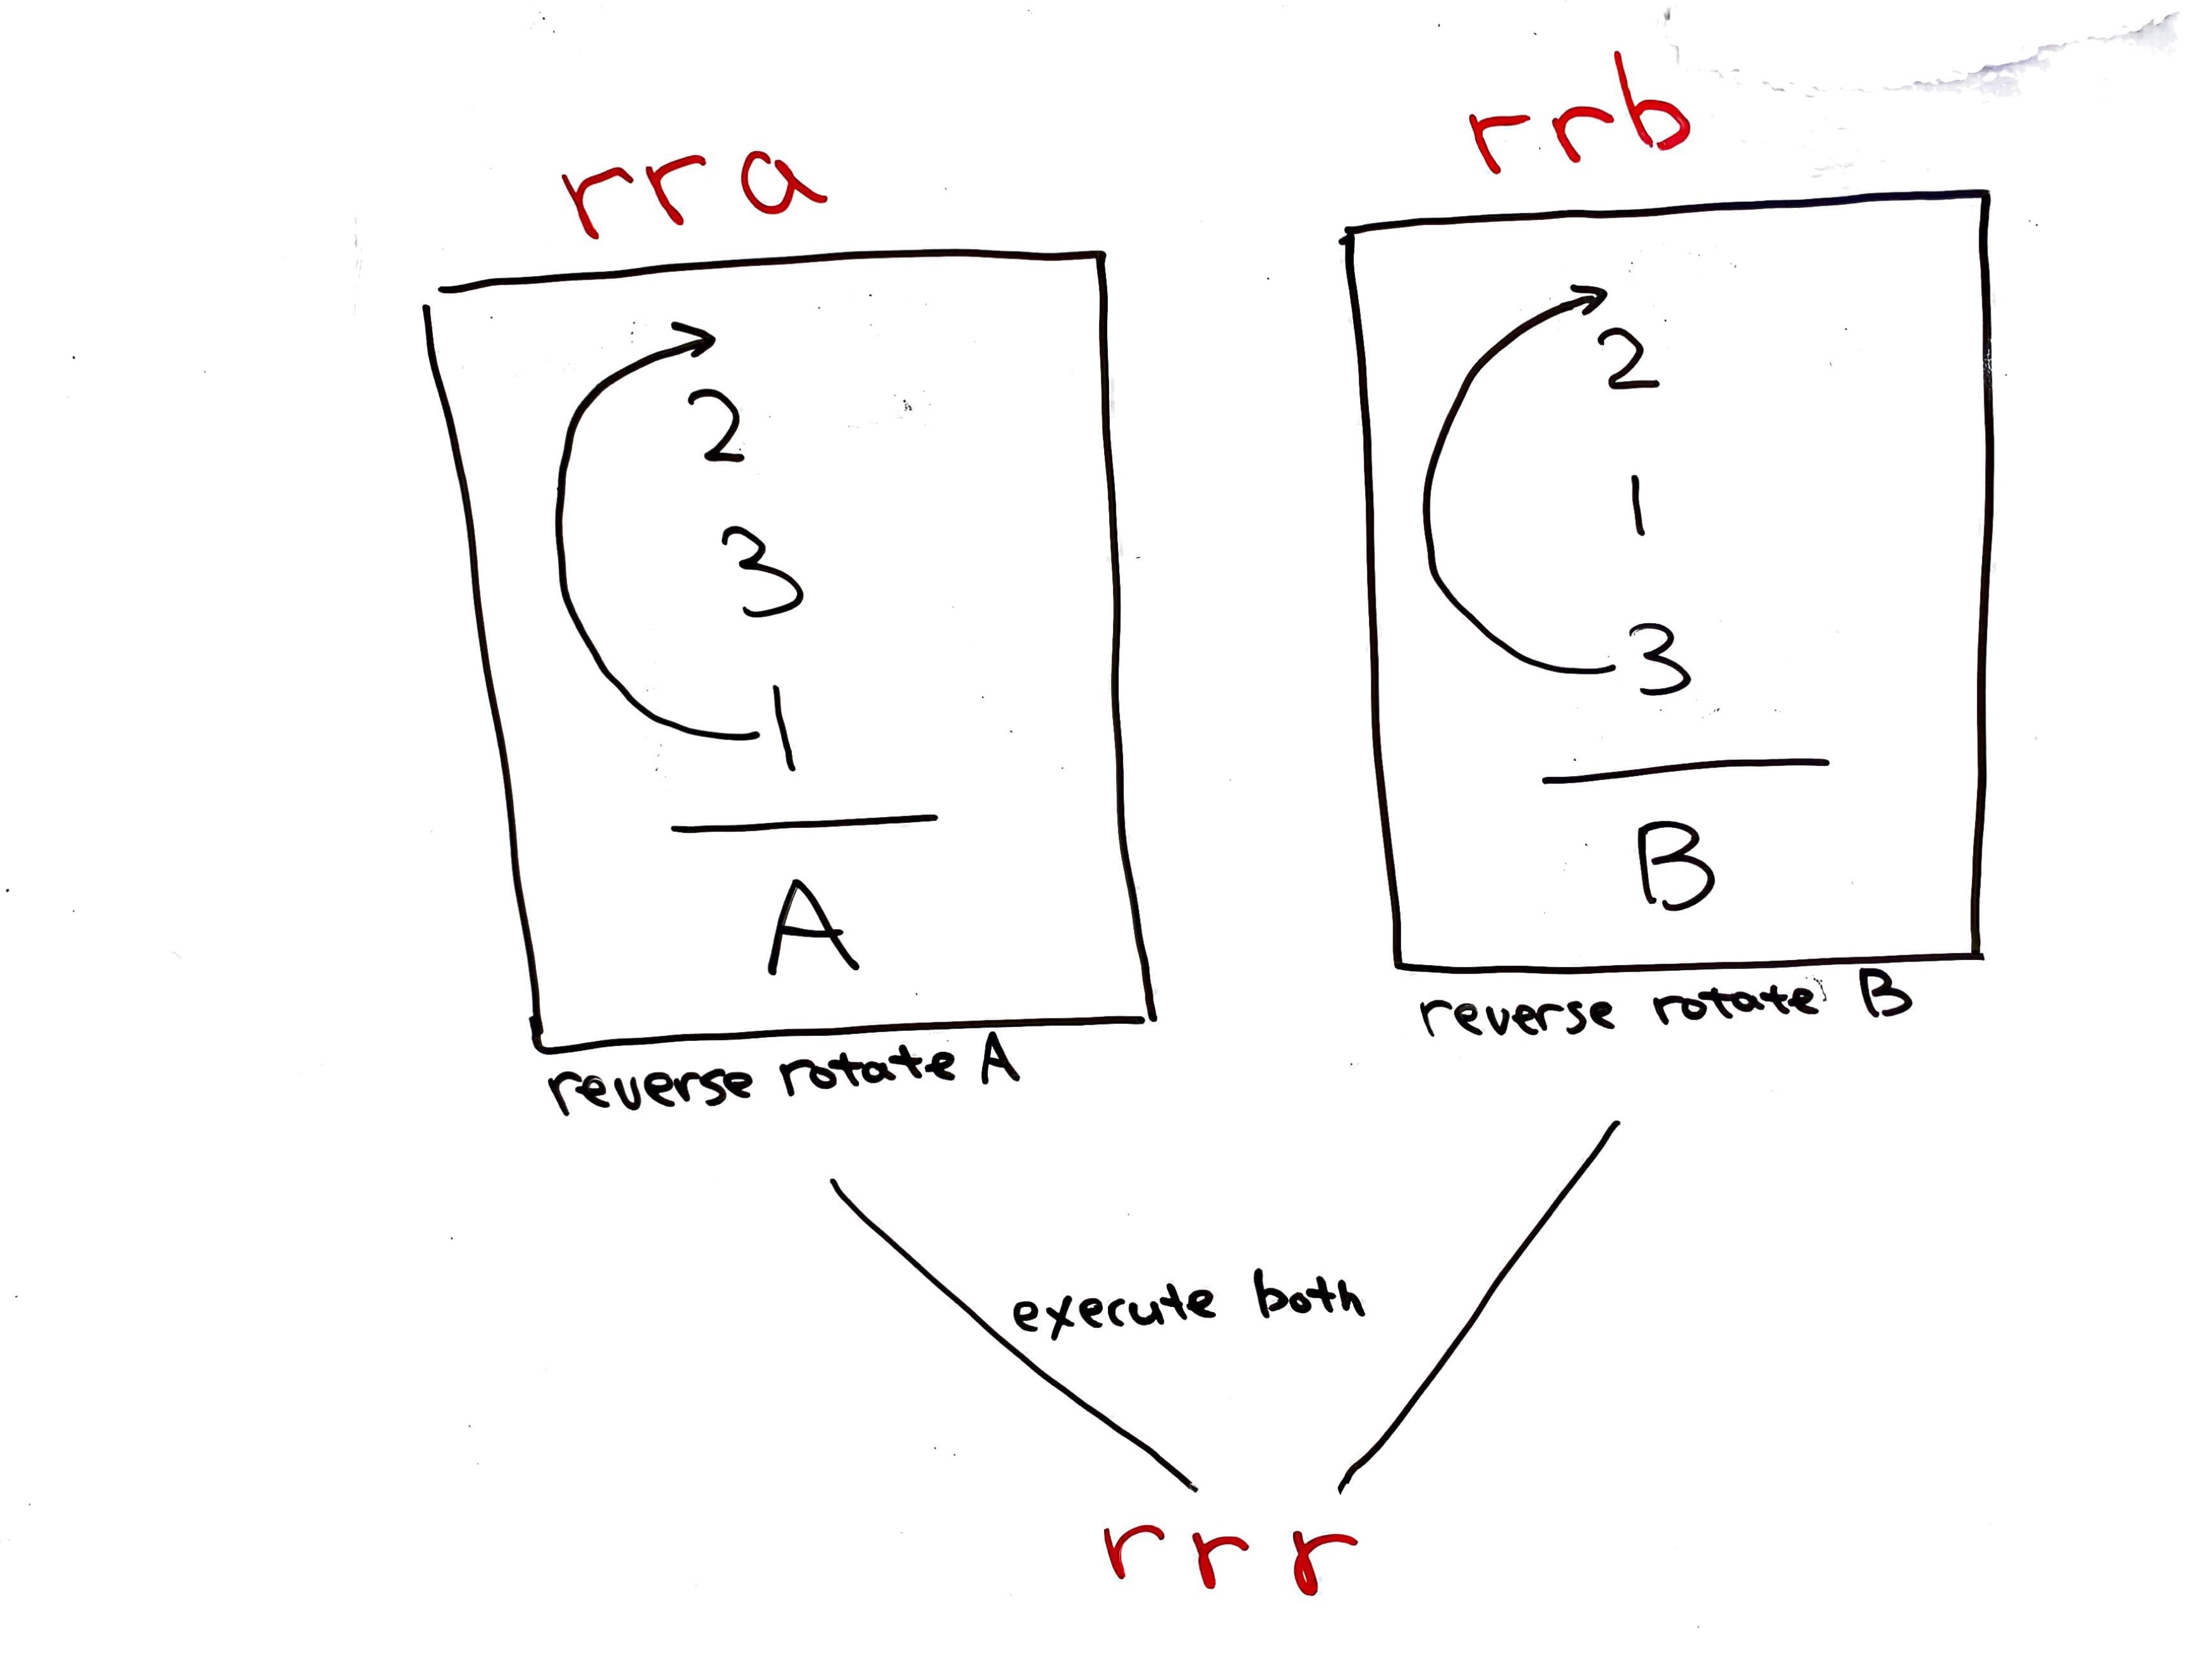 rra
2
3
1
A
reverse rotate A
rrb
2
1
3
B
reverse rotate B
execute both
rrr